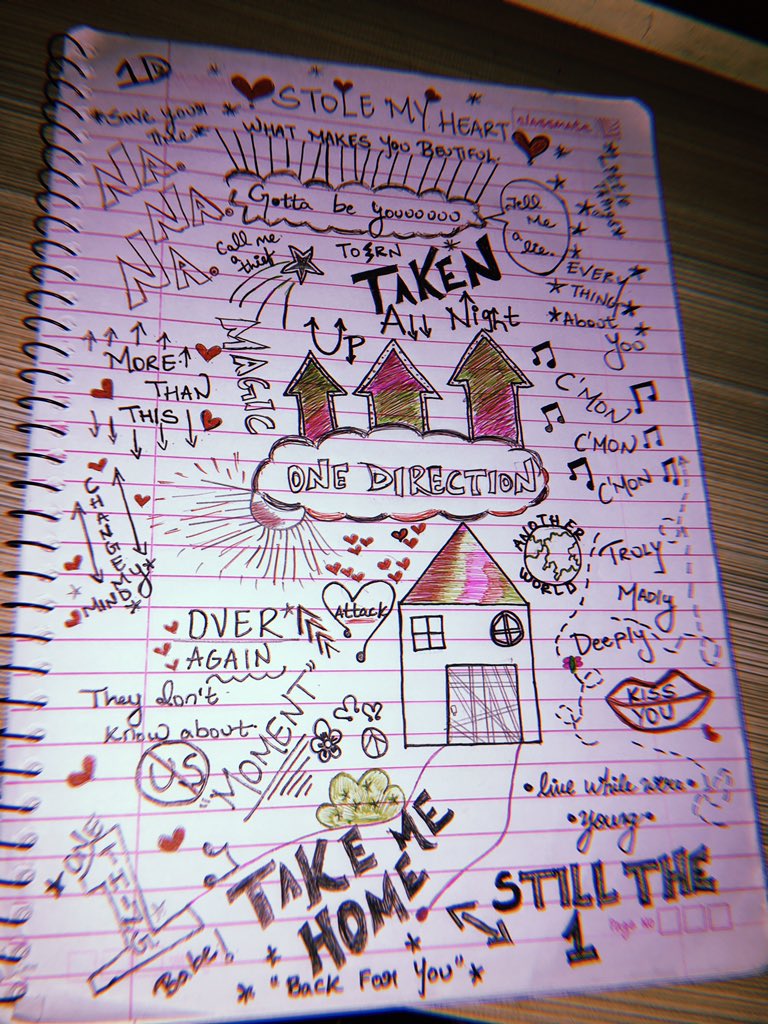 1D
STOLE MY HEART
classmate
*Save your
WHAT MAKES YOU BEUTIFUL.
NA.
NA.
NA.
Gotta be youooooooo
Tell
Me
a
lie.
Call me
a thief
TORN
TAKEN
All Night
EVERY
THING
*About *
You
UP
MAGIC
MORE
THAN
THIS
C'MON
C'MON
C'MON
ONE DIRECTION
CHANGE MY
MIND
ANOTHER
WORLD
TRULY
MADLY
Deeply
Attack
OVER
AGAIN
They don't
know about
US
"MOMENT"
KISS
YOU
•live while were•
•young•
TAKE ME
HOME
ONE
THING
STILL THE
1
Page No
Babe!
* "BACK FOR YOU" *